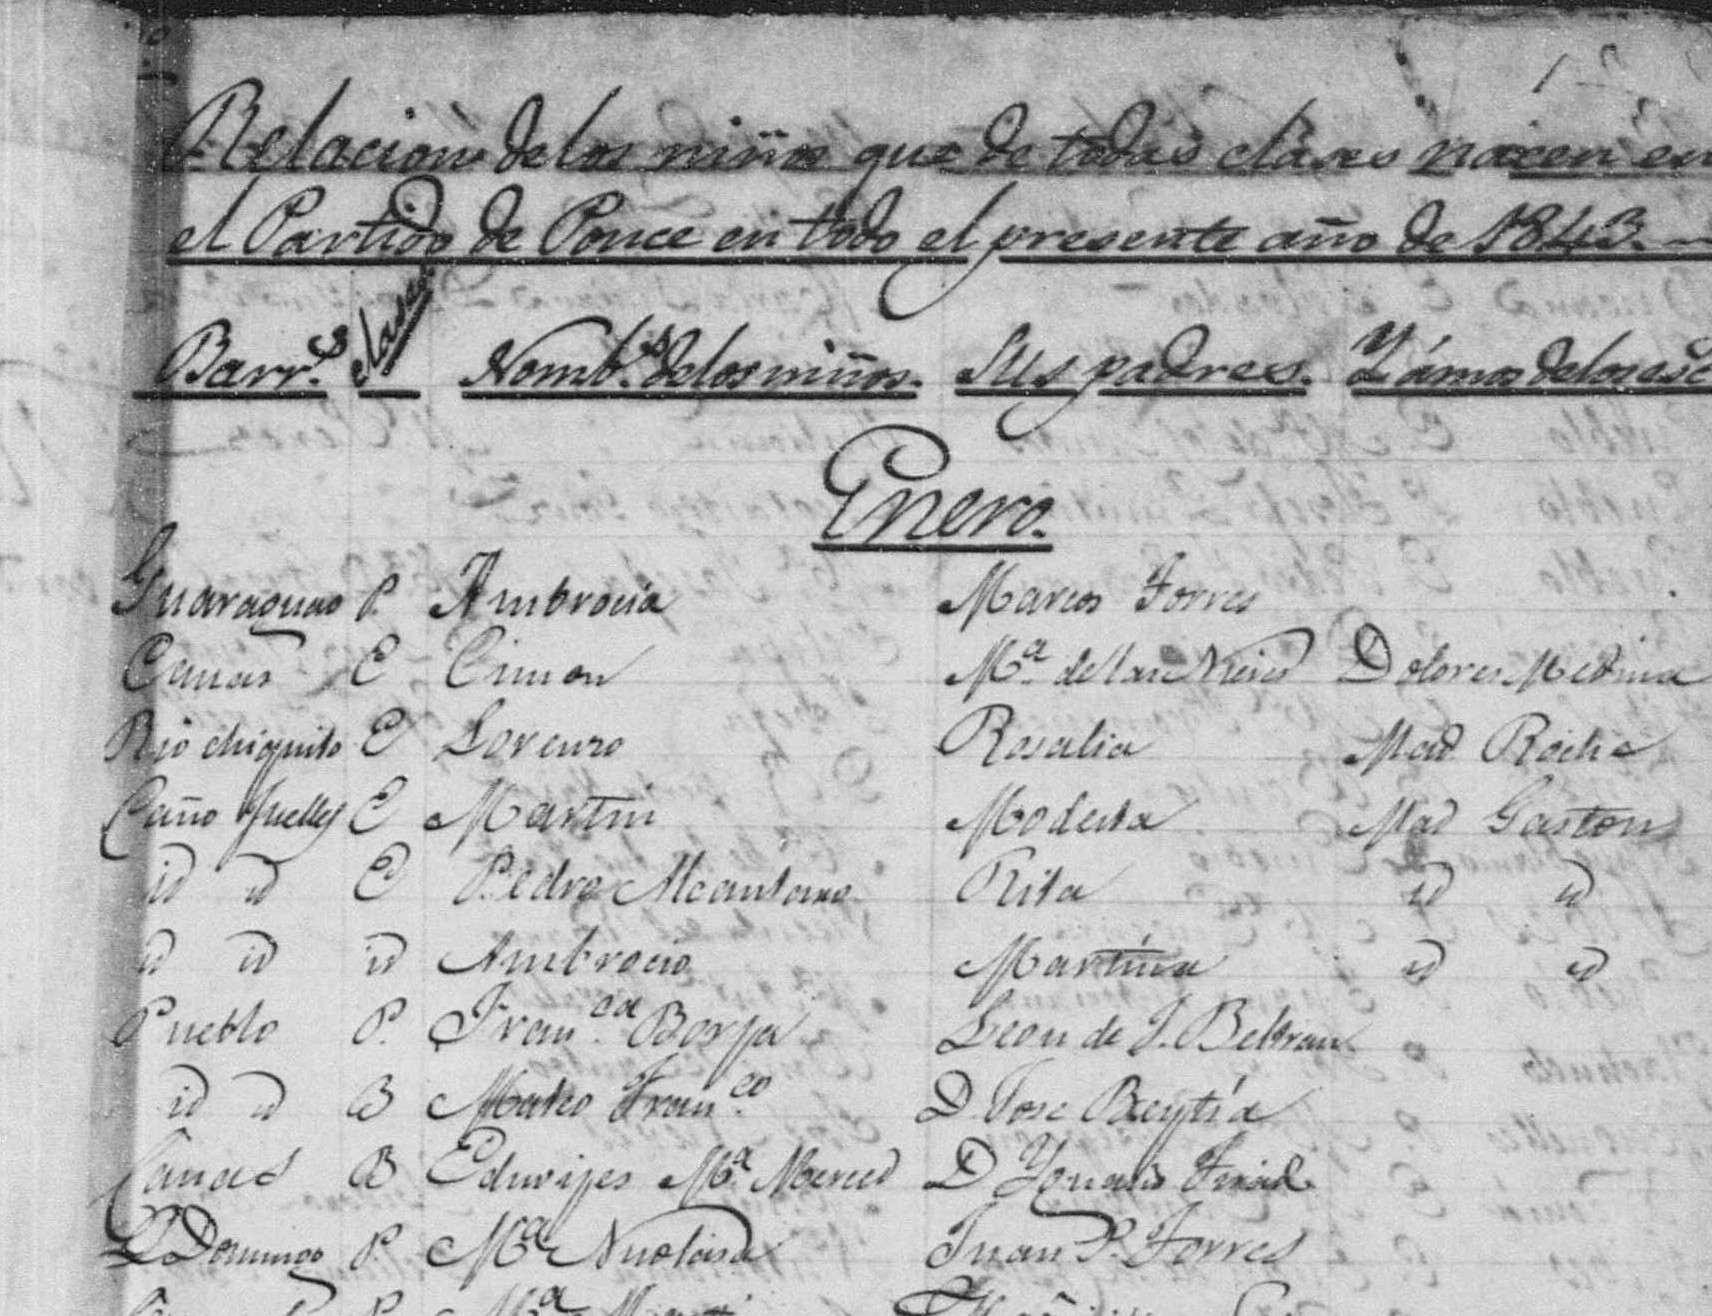 Relacion de los niños que de todas clases nacen en
el Partido de Ponce en todo el presente año de 1843.
Barr.s clases Nomb.s de los niños. Sus padres. Y ámos de los esc
Enero.
Guaraguao P. Ambrocia Marcos Torres
Canas E Cimon M.a de las Nieves Dolores Medina
Rio chiquito E Lorenzo Rosalia Mad Roche
Caño E Martin Modesta Mad Gaston
id id E Pedro Alcantara Rita id id
id id id Ambrocio Martina id id
Pueblo P. Fran.ca Borja Leon de J. Beltran
id id B Mateo Fran.co D. Jose
Canas B Eduvijes M.a Merced D Ygnacio
S Domingo P. M.a Nicolasa Juan P. Torres
P M.a